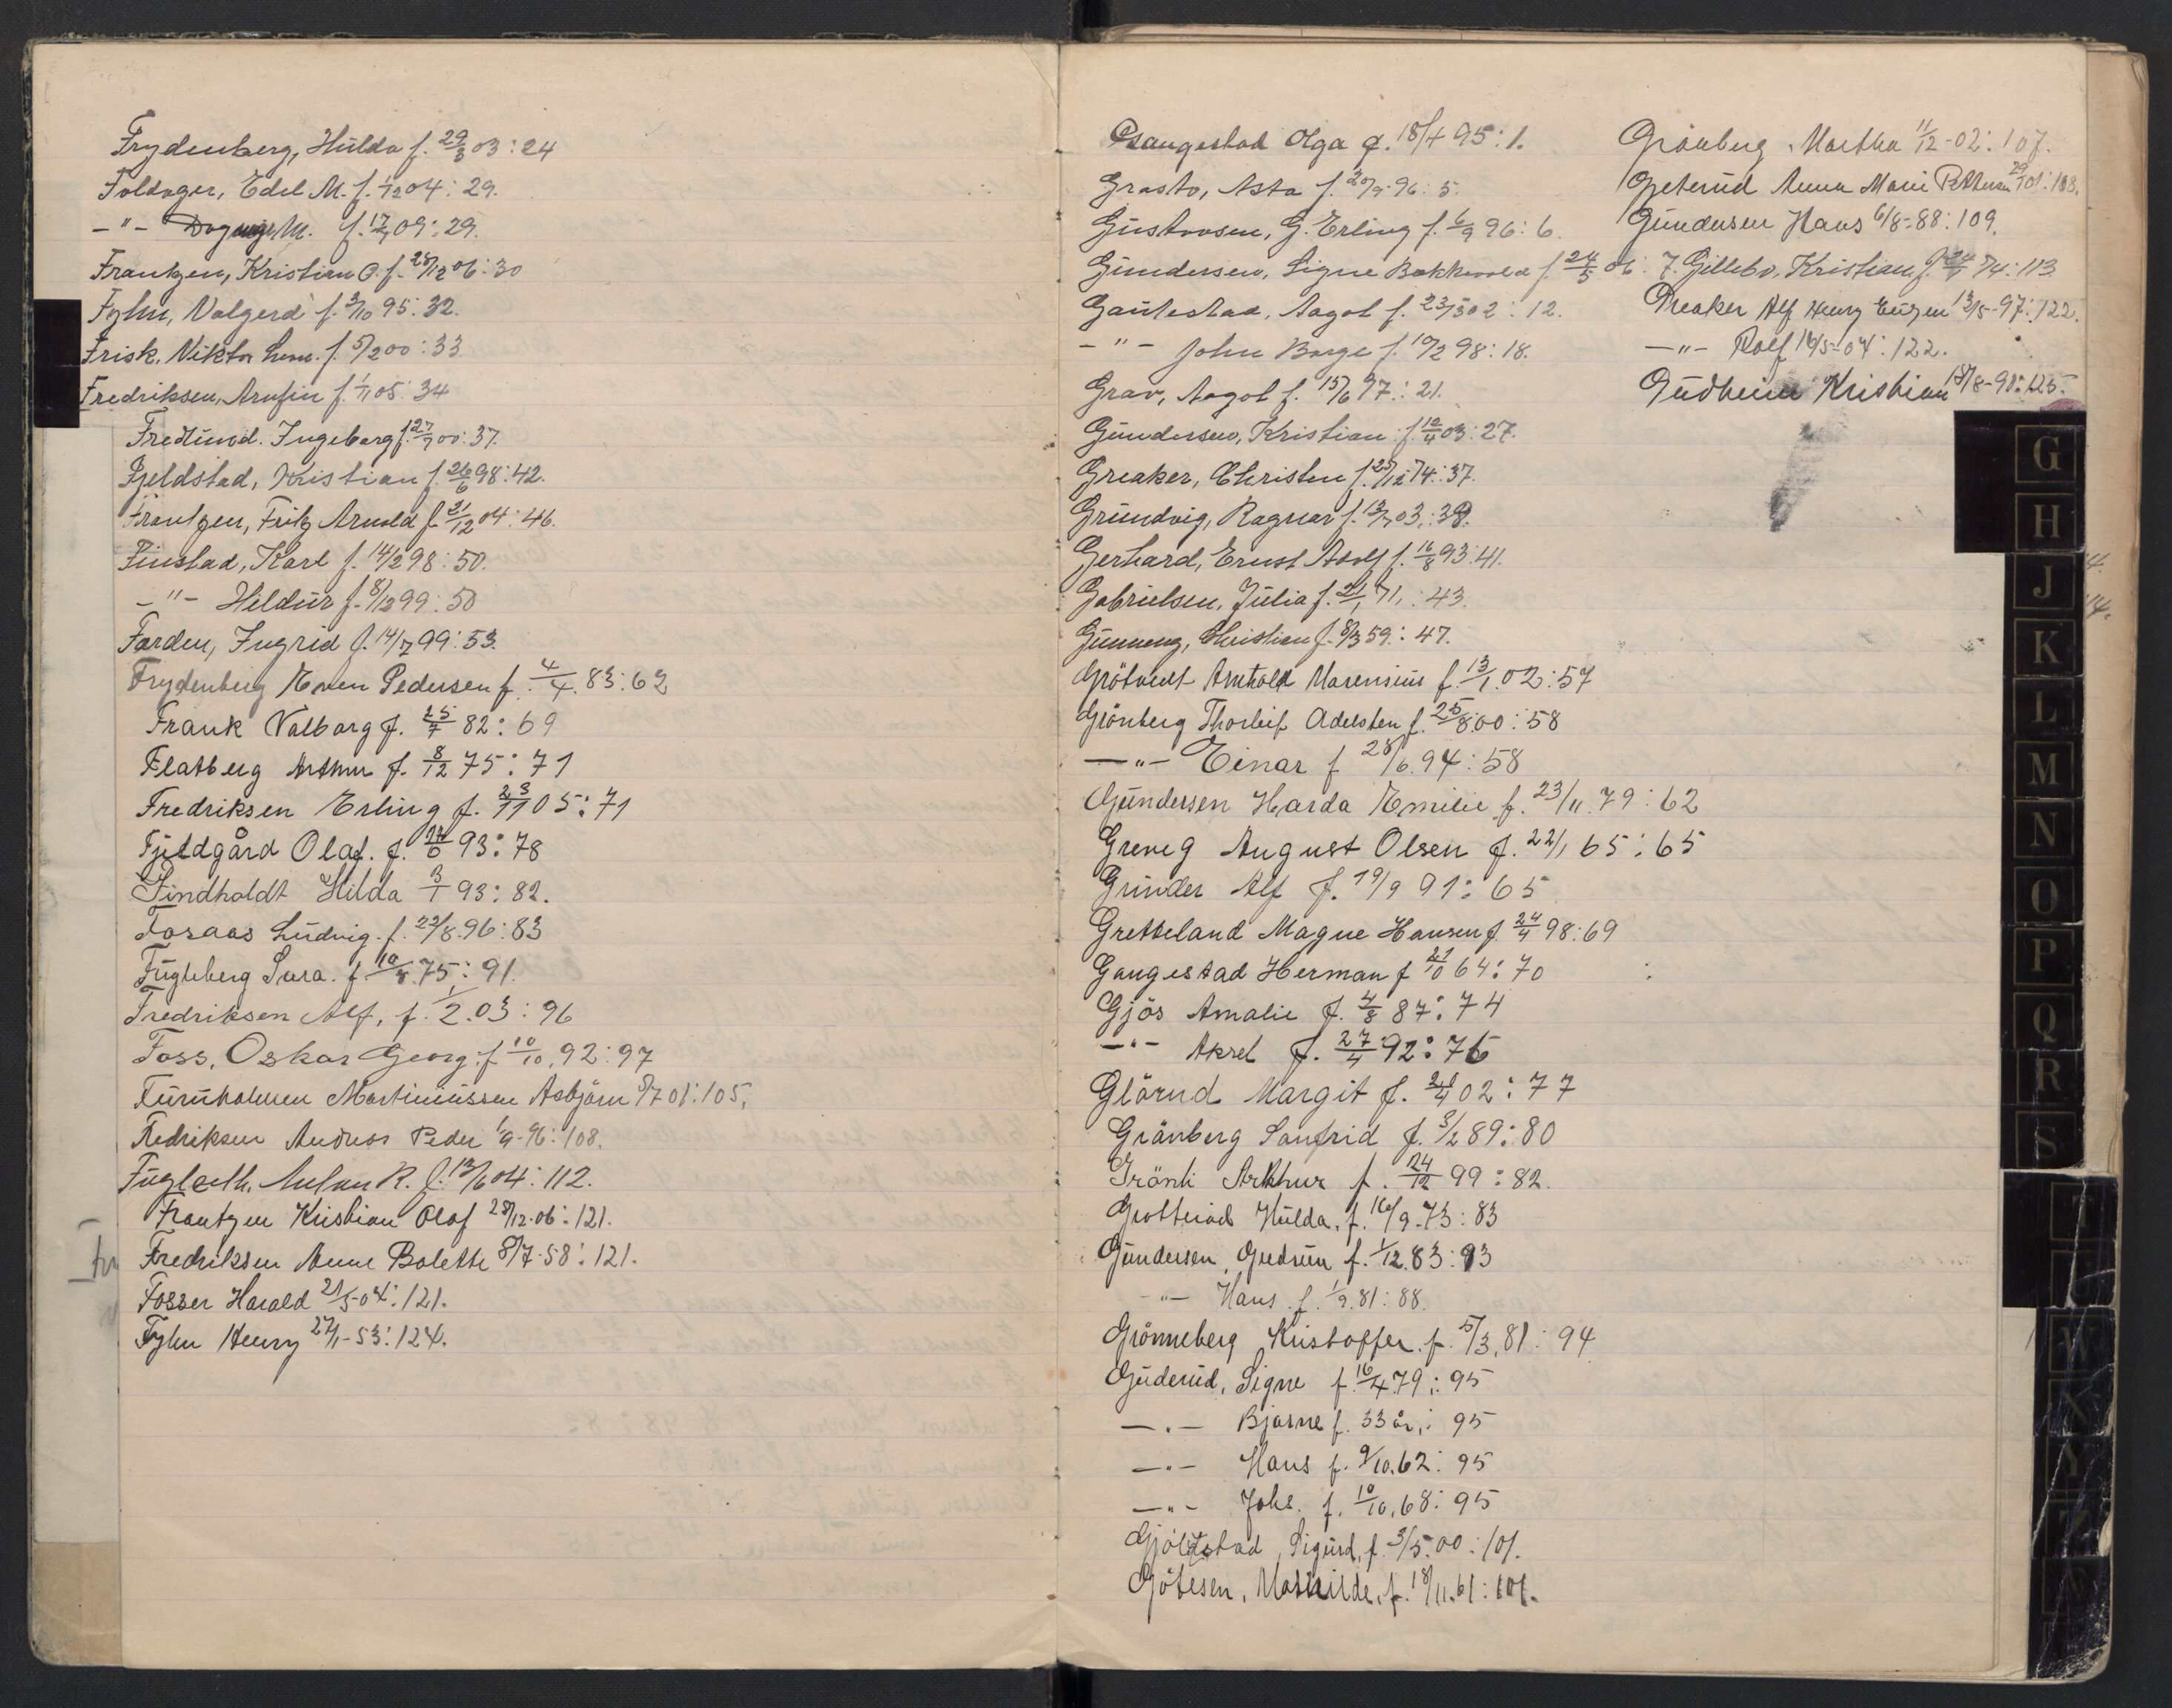 Frydenberg, Hulda f. 29/3 03 : 24
Foldager, Edel M. f. 1/12 04 : 29.
-"- Dagny M. f. 17/7 09 : 29.
Frantzen, Kristian O. f. 28/12 06 : 30
Fyhn, Valgerd f. 3/10 95 : 32.
Frisk, Viktor f. 5/2 00 : 33
Fredriksen, Arnfin f. 1/11 05 : 34
Fredlund. Ingeborg f. 27/9 00 : 37.
Fjeldstad, Kristian f. 26/6 98 : 42.
Frantzen, Fritz Arnold f. 21/12 04 : 46.
Finstad, Karl f. 14/2 98 : 50.
-"- Hildur f. 8/12 99 : 50
Farden, Ingrid f. 14/7 99 : 53.
Frydenberg Even Pedersen f. 4/4. 83 : 62
Frank Valborg f. 25/7 82 : 69
Flatberg Arthur f. 8/12 75 : 71
Fredriksen Erling f. 23/11 05 : 71
Fjeldgård Olaf. f. 93 : 78
Findholdt Hilda 3/1 93 : 82.
Foraas Ludvig. f. 22/8. 96 : 83
Fugleberg Sara. f. 10/8. 75 : 91.
Fredriksen Alf, f. 1/2. 03 : 96
Foss, Oskar Georg. f. 10/10, 92 : 97
Furuholmen Martiniussen Asbjörn 5/7 01 : 105.
Fredriksen Andreas Peder 1/9 - 96 : 108.
R. f. 13/6 04 : 112.
Frantzen Kristian Olaf 28/12 - 06 : 121.
Fredriksen Anne Bolette 8/7 - 58 : 121.
Fosser Harald 21/5 - 04 : 121.
Fyhn Henry 27/1 - 53 : 124.
Gaugestad Olga f. 18/4 95 : 1.
Grasto, Asta f. 20/9 96 : 5.
Gustavsen, G. Erling f. 6/9 96 : 6.
Gundersen, Signe Bakkevold f. 24/5 06 : 7.
Gautestad, Aagot f. 23/5 02 : 12.
-"- John Borge f. 10/2 98 : 18.
Grav, Aagot f. 15/6 97 : 21.
Gundersen, Kristian f. 12/4 03 : 27.
Greaker, Christen f. 25/12 74 : 37.
Grundvig, Ragnar f. 13/7 03 : 38.
Gerhard, Ernst Adolf f. 16/8 93 : 41.
Gabrielsen, Julia f. 21/1 71, : 43.
Gunneng, Christian f. 8/3 59 : 47.
Grötvedt Arnhold Marensius f. 13/1. 02 : 57
Grönberg Thorleif Adelsten f. 25/8. 00 : 58
-"- Einar f 28/6. 94 : 58
Gundersen Harda Emilie f. 23/11. 79 : 62
Greveg August Olsen f. 22/1 65 : 65
Grinder Alf f. 19/9 91 : 65
Gretteland Magne Hansen f. 24/4 98 : 69
Gaugestad Herman f 21/10 64 : 70
Gjös Amalie f. 4/8 87 : 74
-"- Aksel f. 27/4 92 : 76
Glörud Margit f. 02 : 77
Grönberg Sanfrid f. 3/2 89 : 80
Grönli Arthur f. 24/12 99 : 82.
Grotterød Hulda, f. 16/9. 73 : 83
Gundersen, Gudrun f. 1/12. 83 : 93
-"- Hans f. 1/9. 81 : 88.
Grönneberg Kristoffer. f. 5/3, 81 : 94
Guderud, Signe f. 16/4 79 : 95
-"- Bjarne f. 33 år, : 95
-"- Hans f. 9/10. 62 : 95
-"- Johs. f. 10/10, 68 : 95
Gjölstad, Sigurd, f. 3/5. 00 : 101.
Götesen, Mathilde, f. 18/11. 61 : 101.
Grönberg Martha 11/12 - 02 : 107.
Geterud Anna Marie Pettersen 01 : 108.
Gundersen Hans 6/8 - 88 : 109.
Gillebo, Kristian f. 74 : 113
Greaker Alf Henry Eugen 13/5 - 97 : 122.
-"- Rolf 16/5 - 04 : 122.
Gudheim Kristian 18/8 - 98 : 125.
G
H
J
K
L
M
N
O
P
Q
R
S